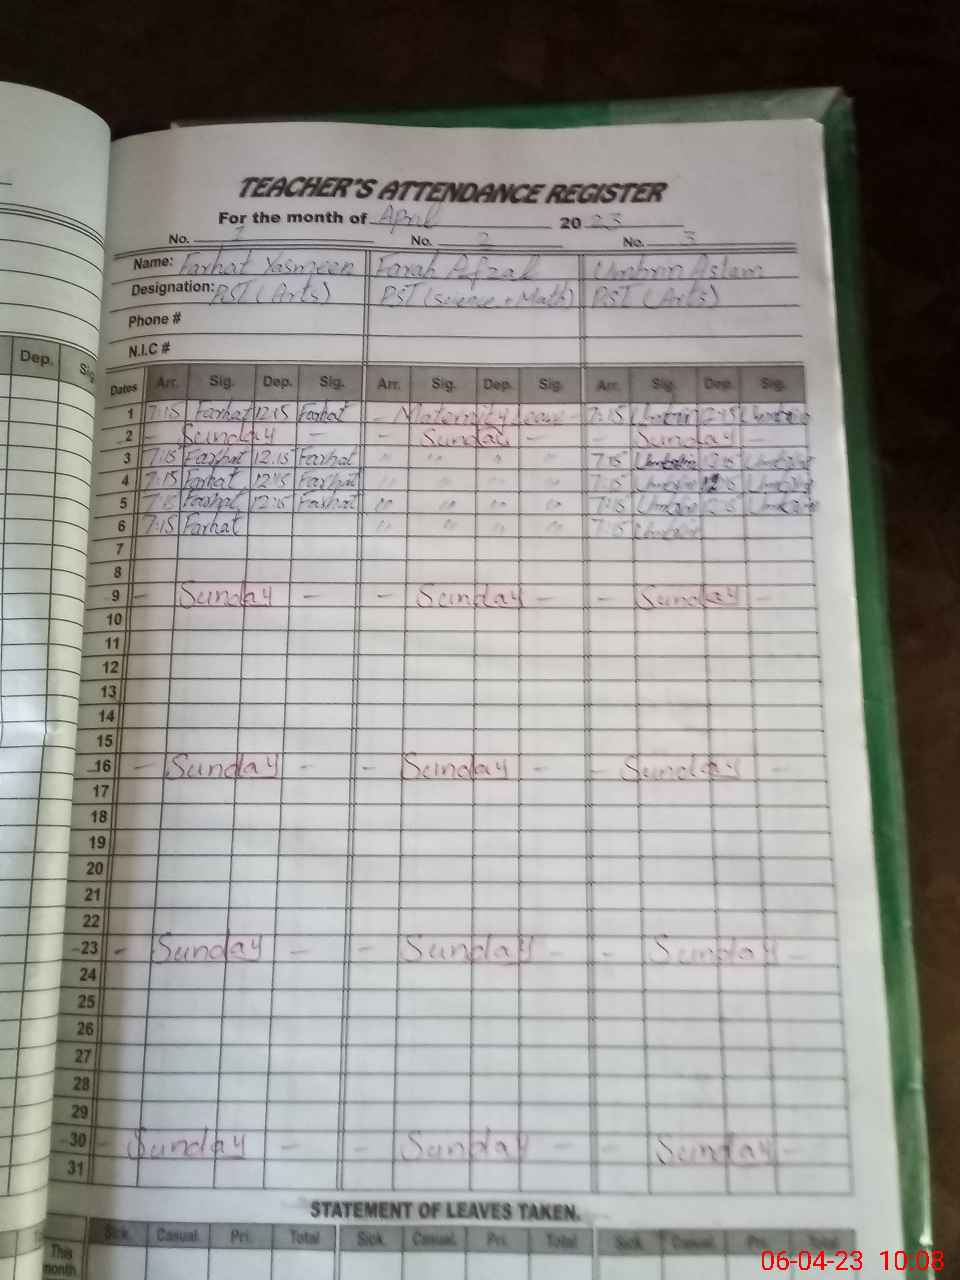 TEACHER'S ATTENDANCE REGISTER
For the month of April 2023
No. 1 No. 2 No. 3
Name: Farhat Yasmeen Farah Afzal Umbrin Aslam
Designation: PST (Arts) PST (Science + Math) PST (Arts)
Phone #
N.I.C #
Dep. Sig
Dates Arr. Sig. Dep. Sig. Arr. Sig. Dep. Sig. Arr. Sig. Dep. Sig.
1 7:15 Farhat 12:15 Farhat - Maternity Leave - 7:15 Umbrin 12:15 Umbrin
2 - Sunday - - Sunday - - Sunday -
3 7:15 Farhat 12:15 Farhat " " " " 7:15 Umbrin 12:15 Umbrin
4 7:15 Farhat 12:15 Farhat " " " " 7:15 Umbrin 12:15 Umbrin
5 7:15 Farhat 12:15 Farhat " " " " 7:15 Umbrin 12:15 Umbrin
6 7:15 Farhat " " " " 7:15 Umbrin
7
8
9 - Sunday - - Sunday - - Sunday -
10
11
12
13
14
15
16 - Sunday - - Sunday - - Sunday -
17
18
19
20
21
22
23 - Sunday - - Sunday - - Sunday -
24
25
26
27
28
29
30 - Sunday - - Sunday - - Sunday -
31
STATEMENT OF LEAVES TAKEN.
Sick. Casual. Pri. Total Sick. Casual. Pri. Total Sick. Casual. Pri. Total
This month
06-04-23 10:08